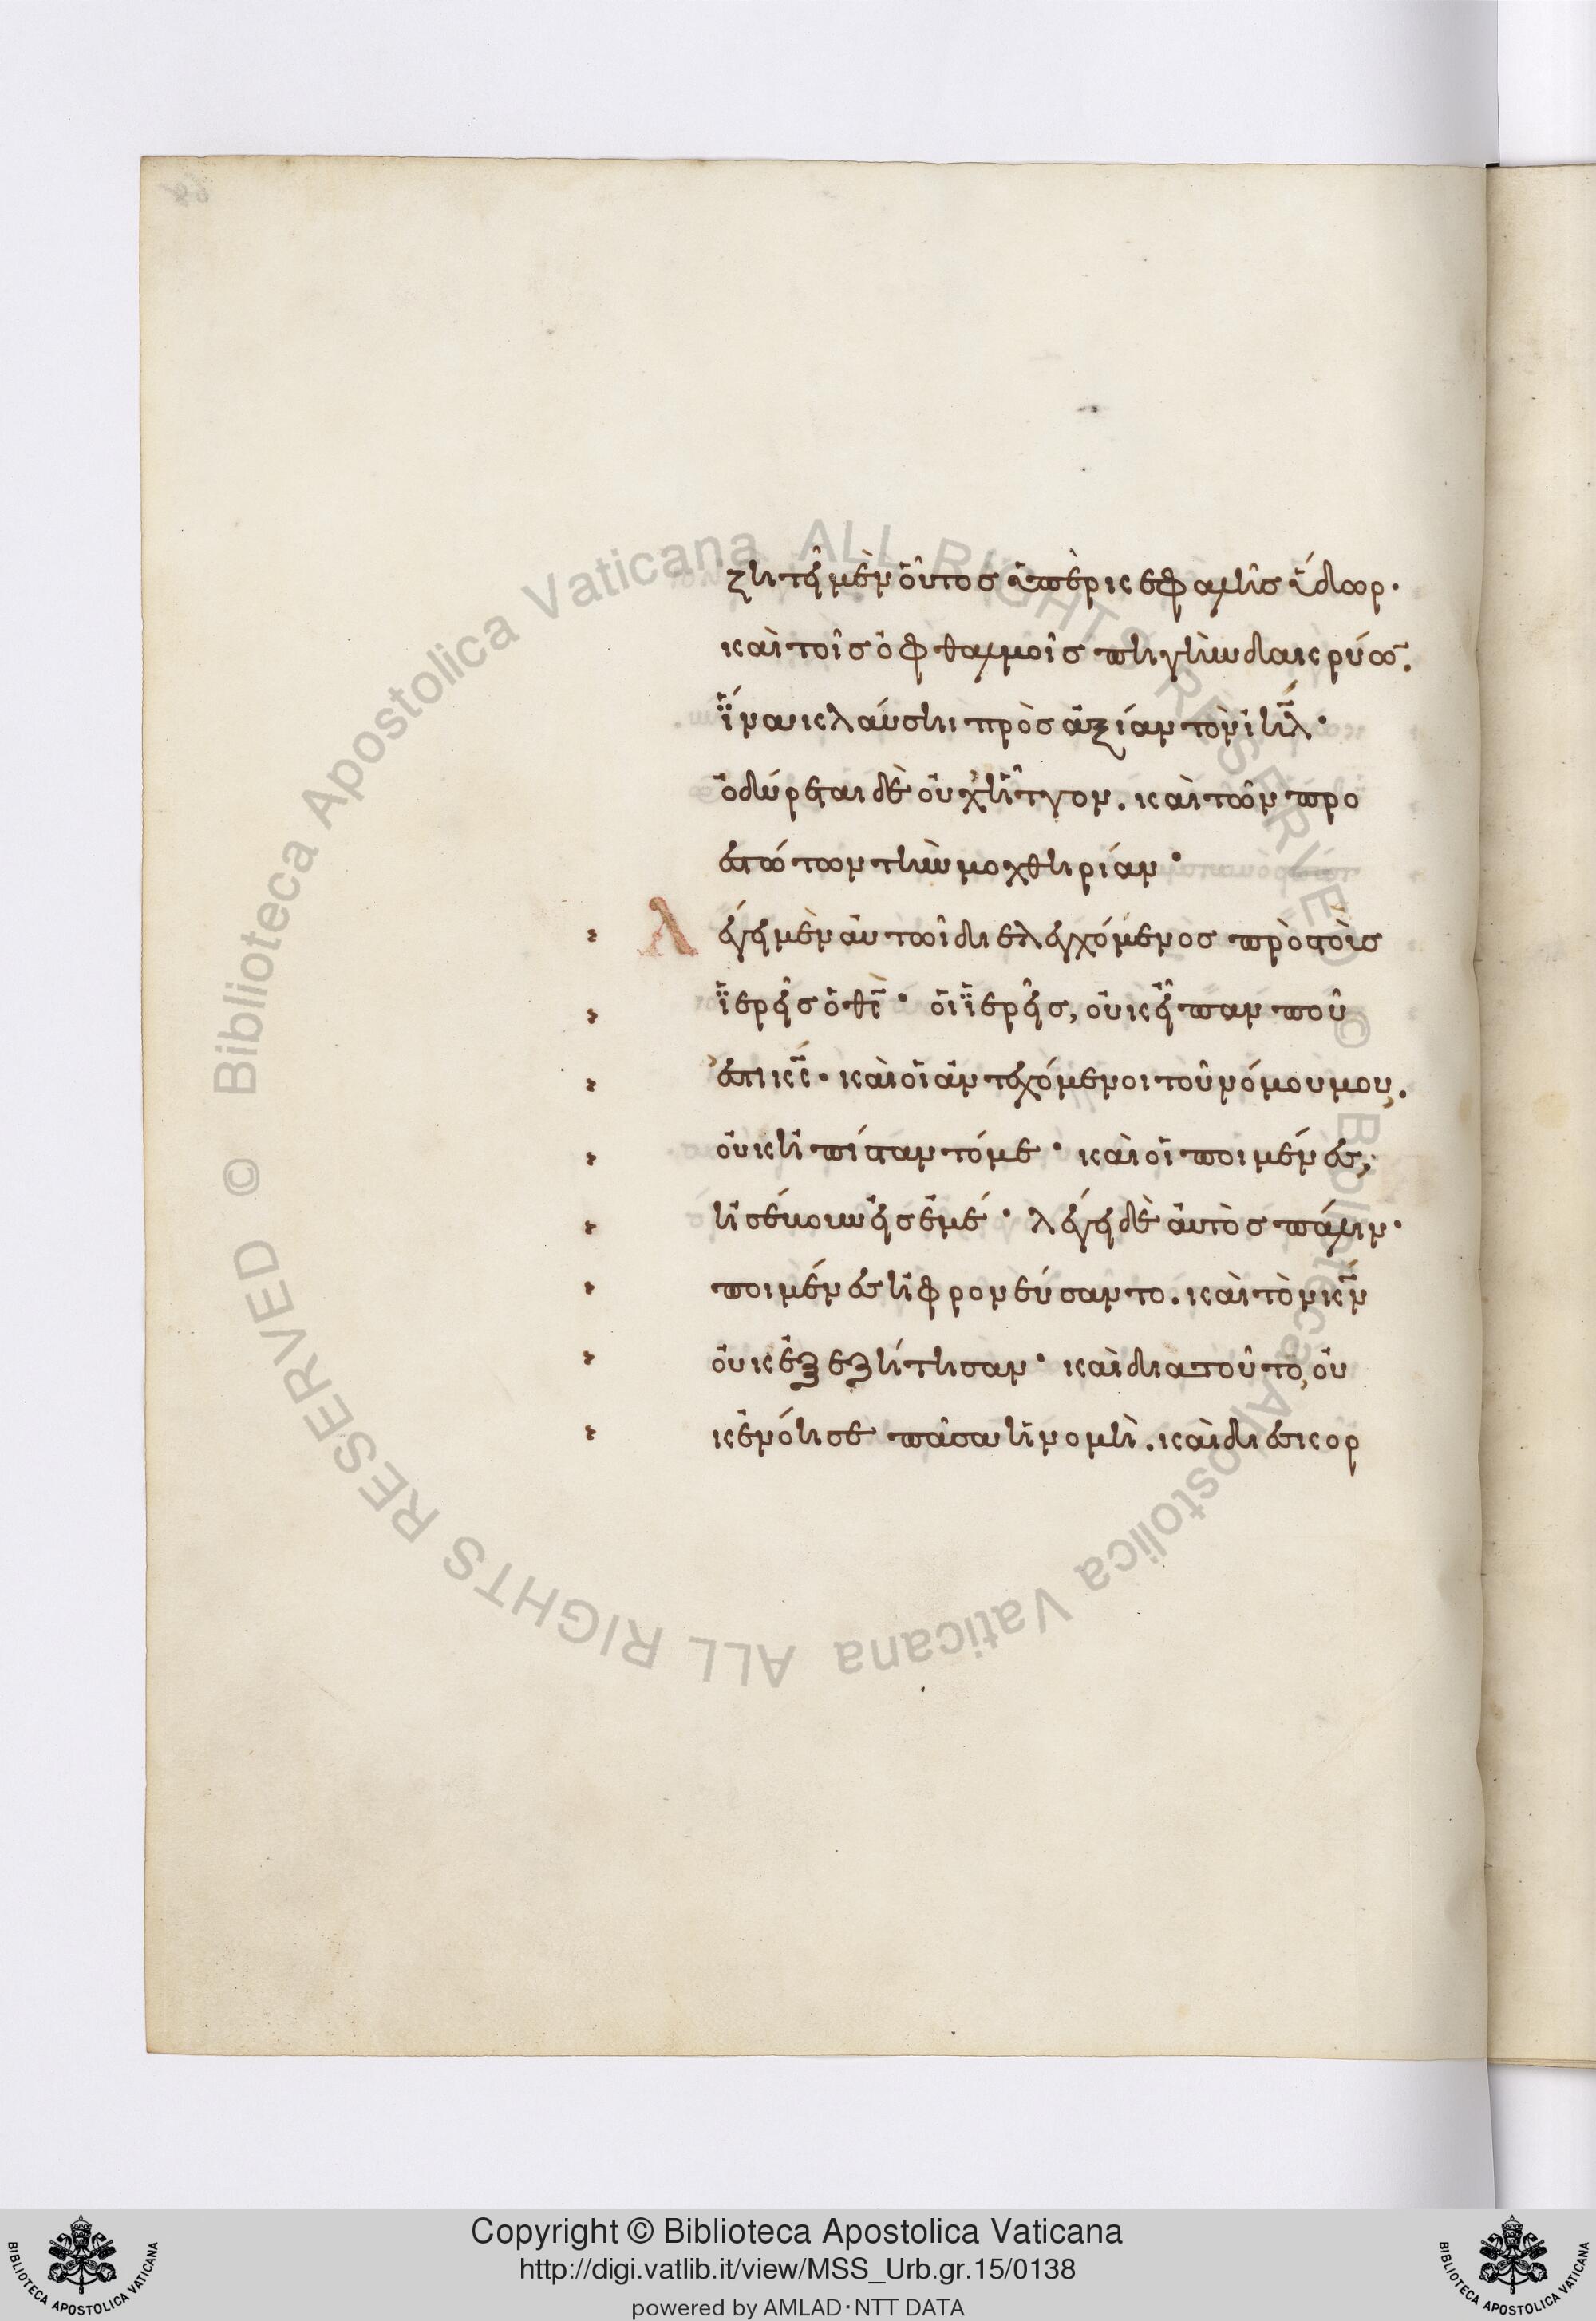 ζητεῖ μὲν οὗτος ἀπὲρ κεφαλῆς ὕδωρ·
καὶ τοῖς ὀφθαλμοῖς πηγὴν δακρύων.
ἵνα κλαύσηι πρὸς ἀξίαν τὸν ιηλ·
ὀδύρεται δὲ οὐχ ἧττον. καὶ τῶν προ
εστώτων τὴν μοχθηρίαν·
Λέγει μὲν αὐτῶι διελεγχόμενος πρὸς τοὺς
ἱερεῖς ὁ θς· οἱ ἱερεῖς, οὐκ εἶπαν ποῦ
ἐστι κς· καὶ οἱ ἀντεχόμενοι τοῦ νόμου μου,
οὐκ ἠπίσταντό με· καὶ οἱ ποιμένες,
ἠσέβουν εἰς ἐμέ· λέγει δὲ αὐτὸς πάλιν·
ποιμένες ἠφρονεύσαντο. καὶ τὸν κν
οὐκ ἐξεζήτησαν· καὶ διατοῦτο, οὐ
κ ἐνόησε πᾶσα ἡ νομὴ. καὶ διεσκορ
Copyright © Biblioteca Apostolica Vaticana
http://digi.vatlib.it/view/MSS_Urb.gr.15/0138
powered by AMLAD·NTT DATA
BIBLIOTECA APOSTOLICA VATICANA
BIBLIOTECA APOSTOLICA VATICANA
© Biblioteca Apostolica Vaticana ALL RIGHTS RESERVED © Biblioteca Apostolica Vaticana ALL RIGHTS RESERVED